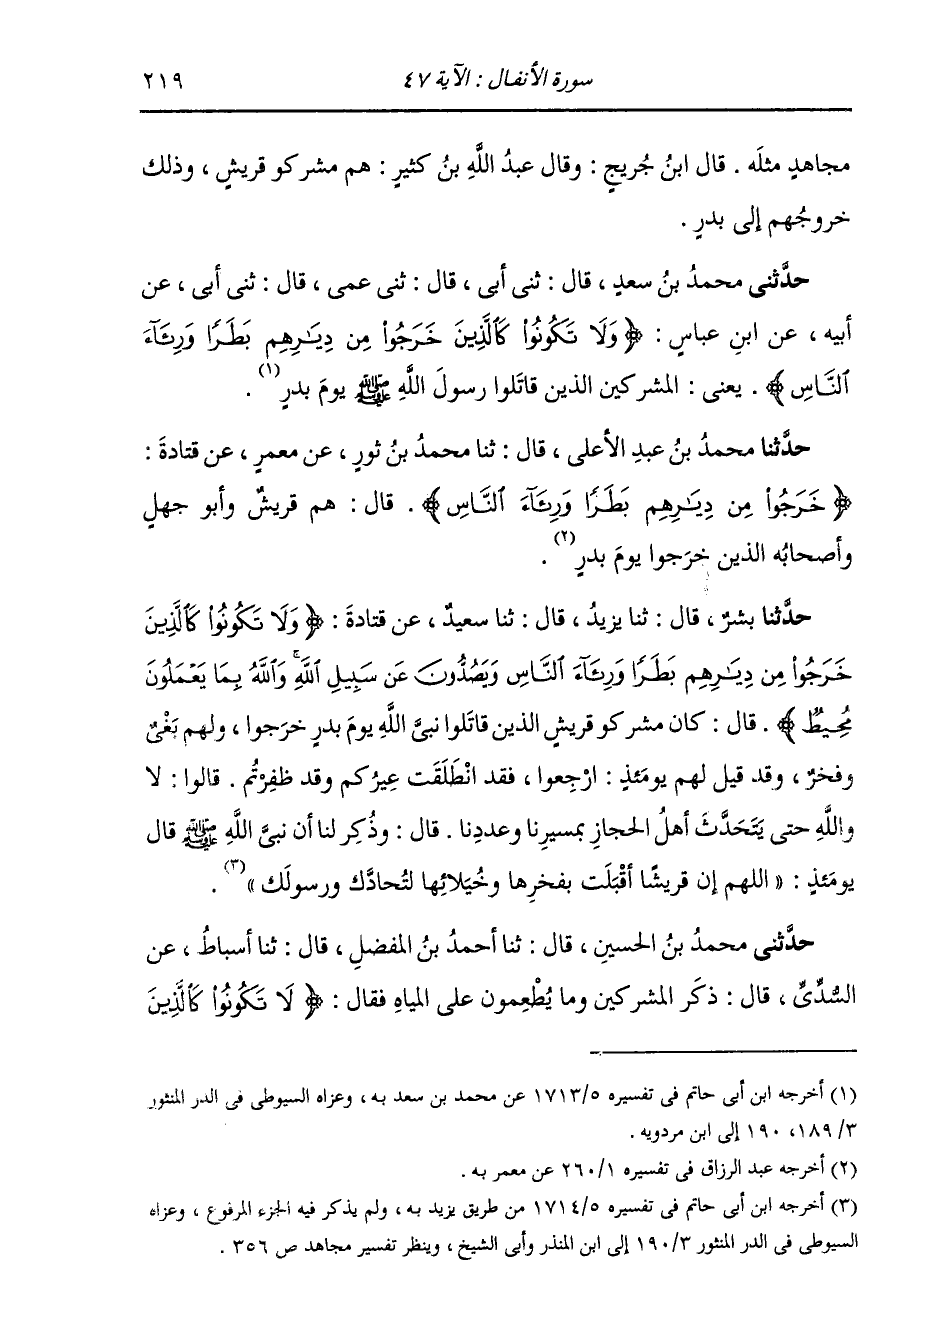 سورة الأنفال : الآية ٤٧ ٢١٩
مجاهدٍ مثلَه . قال ابنُ جُريجٍ : وقال عبدُ اللَّهِ بنُ كثيرٍ : هم مشركو قريشٍ ، وذلك
خروجُهم إلى بدرٍ .
حدَّثني محمدُ بنُ سعدٍ ، قال : ثنى أبى ، قال : ثنى عمى ، قال : ثنى أبى ، عن
أبيه ، عن ابنِ عباسٍ : ﴿ وَلَا تَكُونُواْ كَٱلَّذِينَ خَرَجُواْ مِن دِيَٰرِهِم بَطَرًا وَرِئَآءَ
ٱلنَّاسِ ﴾ . يعنى : المشركين الذين قاتَلوا رسولَ اللَّهِ ﷺ يومَ بدرٍ (١) .
حدَّثنا محمدُ بنُ عبدِ الأعلى ، قال : ثنا محمدُ بنُ ثورٍ ، عن معمرٍ ، عن قتادةَ :
﴿ خَرَجُواْ مِن دِيَٰرِهِم بَطَرًا وَرِئَآءَ ٱلنَّاسِ ﴾ . قال : هم قريشٌ وأبو جهلٍ
وأصحابُه الذين خرَجوا يومَ بدرٍ (٢) .
حدَّثنا بشرٌ ، قال : ثنا يزيدُ ، قال : ثنا سعيدٌ ، عن قتادةَ : ﴿ وَلَا تَكُونُواْ كَٱلَّذِينَ
خَرَجُواْ مِن دِيَٰرِهِم بَطَرًا وَرِئَآءَ ٱلنَّاسِ وَيَصُدُّونَ عَن سَبِيلِ ٱللَّهِۚ وَٱللَّهُ بِمَا يَعْمَلُونَ
مُحِيطٌ ﴾ . قال : كان مشركو قريشٍ الذين قاتَلوا نبىَّ اللَّهِ يومَ بدرٍ خرَجوا ، ولهم بَغْىٌ
وفخرٌ ، وقد قيل لهم يومَئذٍ : ارْجِعوا ، فقد انْطَلَقَت عِيرُكم وقد ظفِرْتُم . قالوا : لا
واللَّهِ حتى يَتَحَدَّثَ أهلُ الحجازِ بمسيرِنا وعددِنا . قال : وذُكِر لنا أن نبىَّ اللَّهِ ﷺ قال
يومَئذٍ : « اللهم إن قريشًا أقْبَلَت بفخرِها وخُيَلائِها لتُحادَّك ورسولَك » (٣) .
حدَّثنى محمدُ بنُ الحسينِ ، قال : ثنا أحمدُ بنُ المفضلِ ، قال : ثنا أسباطُ ، عن
السُّدِّىِّ ، قال : ذكَر المشركين وما يُطْعِمون على المياهِ فقال : ﴿ لَا تَكُونُواْ كَٱلَّذِينَ
(١) أخرجه ابن أبى حاتم فى تفسيره ١٧١٣/٥ عن محمد بن سعد به ، وعزاه السيوطى فى الدر المنثور
١٨٩/٣، ١٩٠ إلى ابن مردويه .
(٢) أخرجه عبد الرزاق فى تفسيره ٢٦٠/١ عن معمر به .
(٣) أخرجه ابن أبى حاتم فى تفسيره ١٧١٤/٥ من طريق يزيد به ، ولم يذكر فيه الجزء المرفوع ، وعزاه
السيوطى فى الدر المنثور ١٩٠/٣ إلى ابن المنذر وأبى الشيخ ، وينظر تفسير مجاهد ص ٣٥٦ .